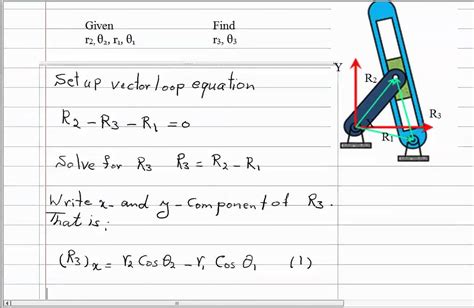 Given Find
r₂, θ₂, r₁, θ₁ r₃, θ₃
Y
R₂
R₃
R₁
Set up vector loop equation
R₂ – R₃ – R₁ = 0
Solve for R₃ R₃ = R₂ – R₁
Write x- and y-component of R₃.
That is:
(R₃)ₓ = r₂ Cos θ₂ – r₁ Cos θ₁ (1)